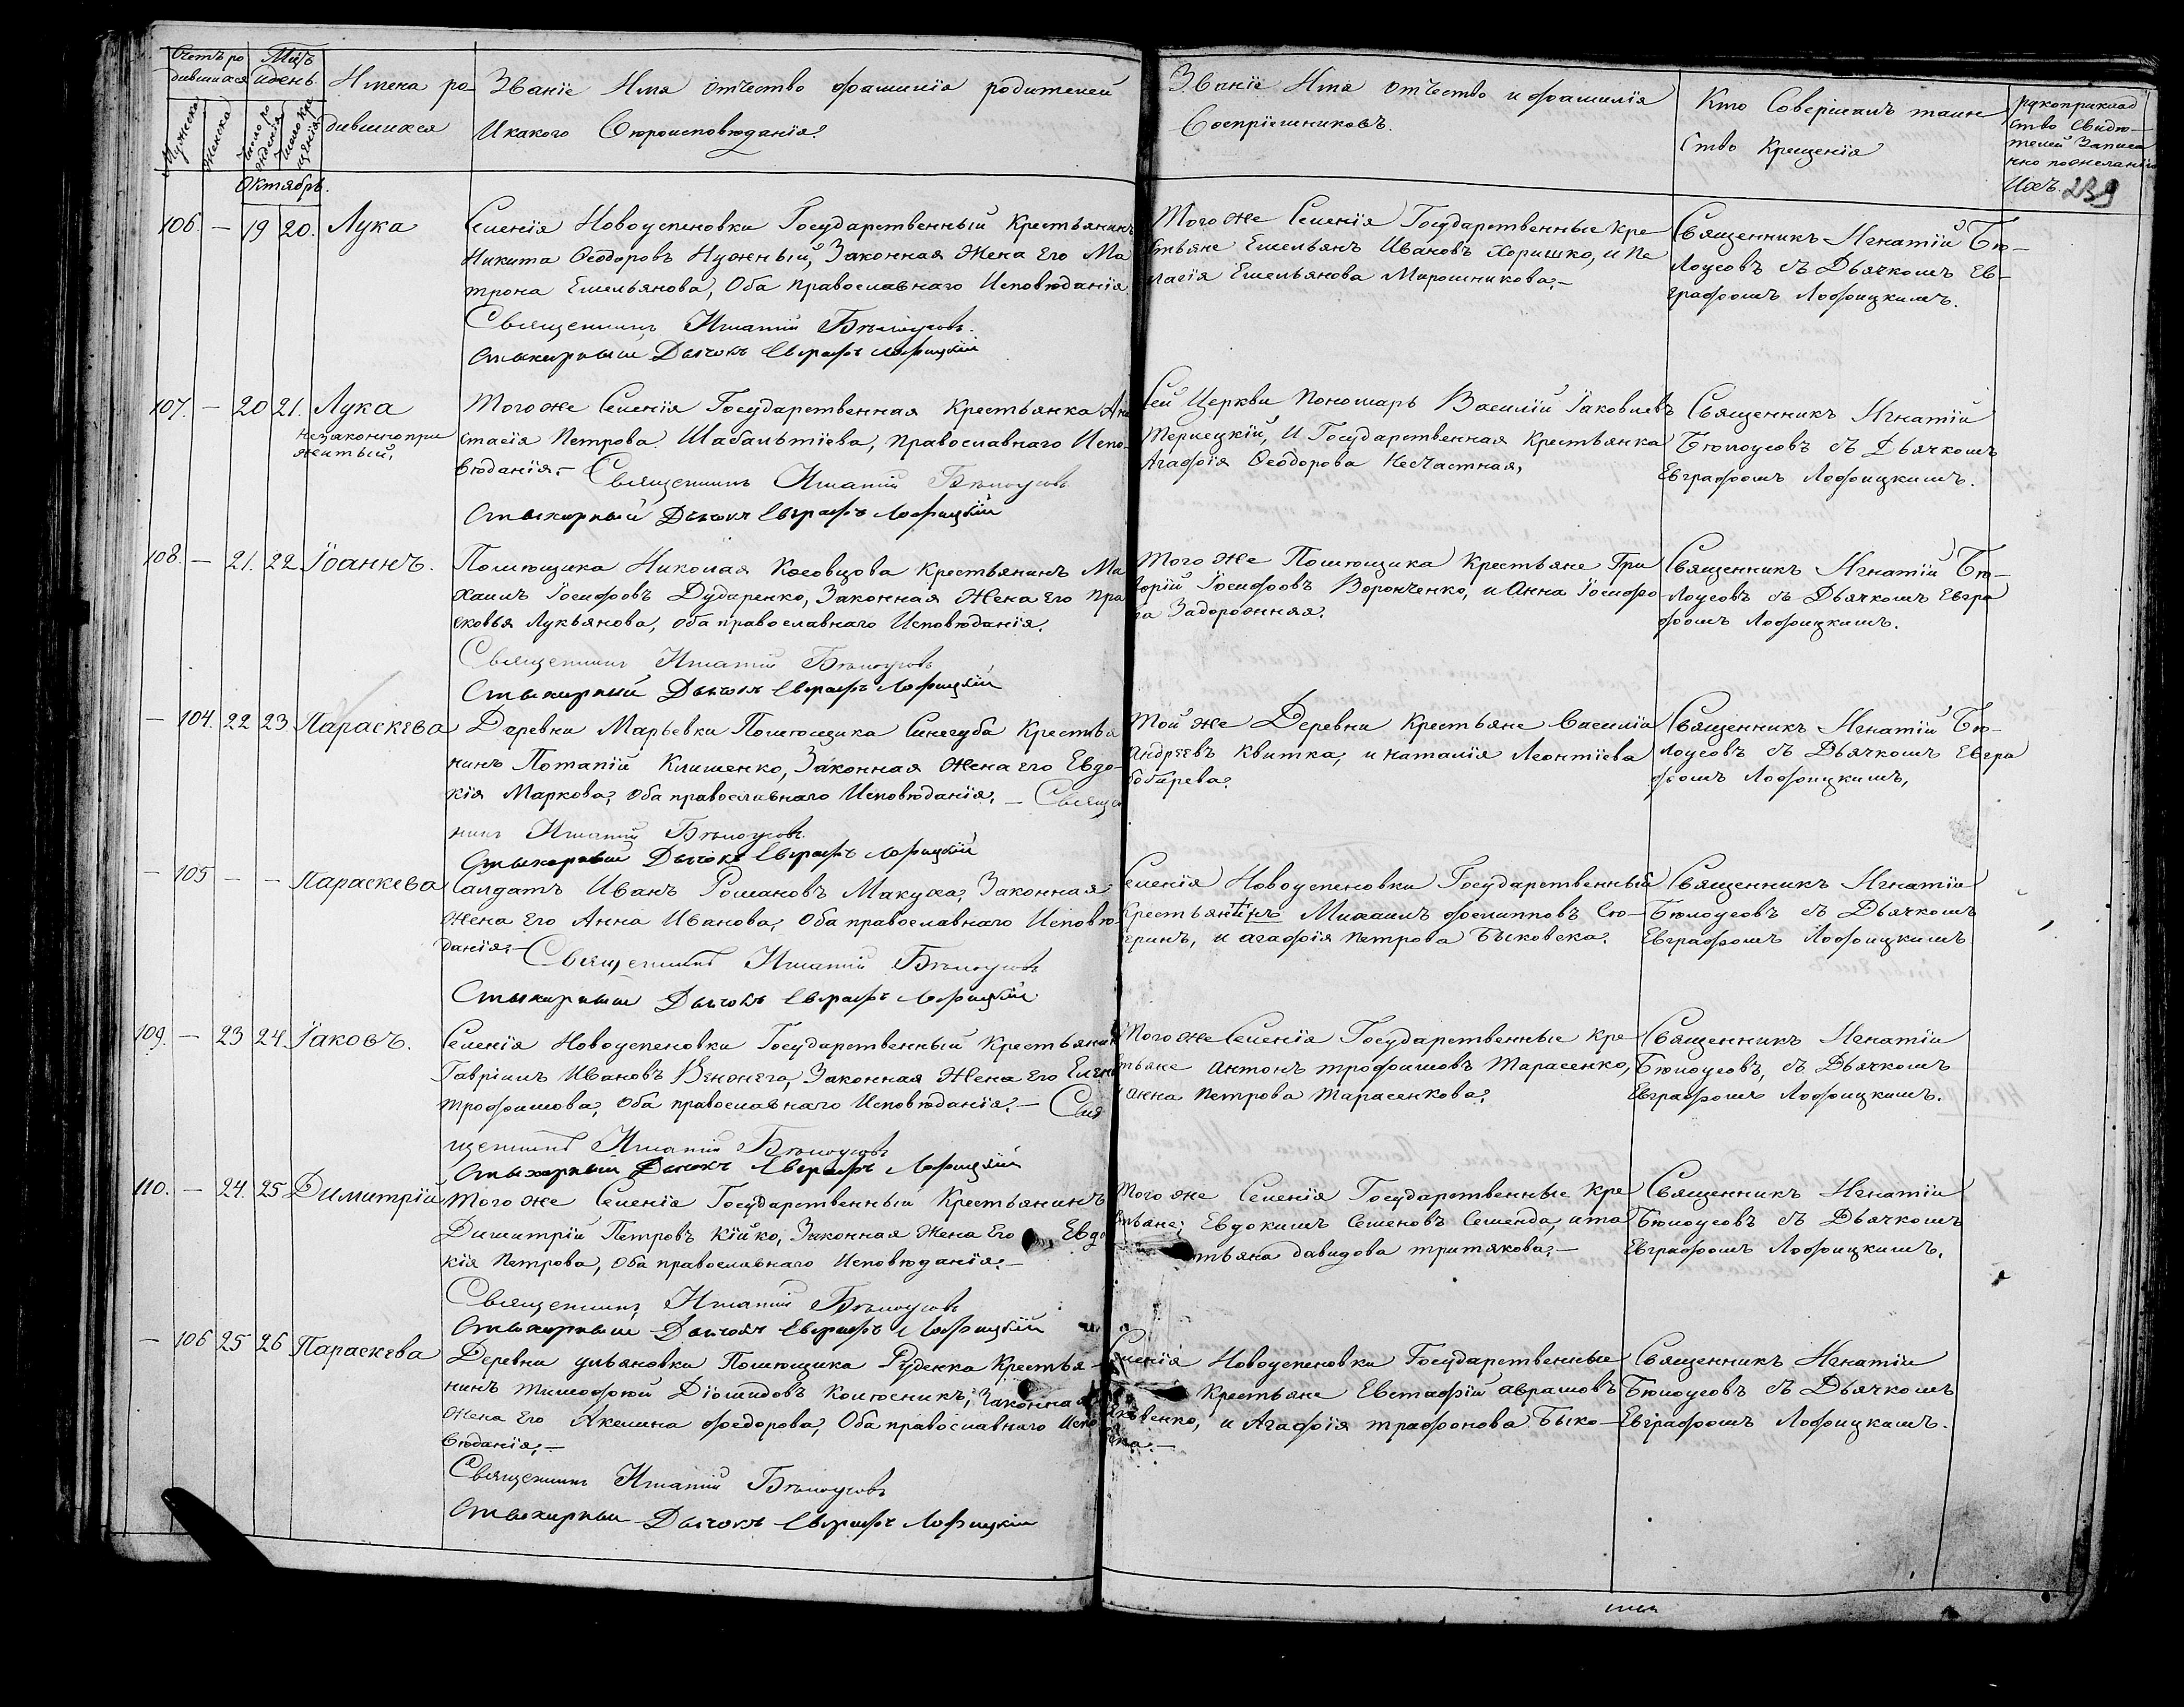 Счетъ ро
дившихся
Мѣсъ
и день
Имена ро
дившихся
Званіе Имя отчество фамилія родителей
И какого Вѣроисповѣданія.
Званіе Имя отчество и фамилія
Воспріемниковъ.
Кто Совершалъ таин
ство Крещенія
рукоприклад
ство Свидѣ-
телей Записа
но по желанію
Ихъ.
239
Мужеска
Женска
Число ро
жденія
Число Кре
щенія
Октябрь.
106. — 19 20. Лука
Селенія Новоуспеновки Государственный Крестьянинъ
Никита Ѳеодоровъ Нужный, Законная Жена Его Ма
трона Емельянова, Оба православнаго Исповѣданія.
Священникъ Игнатій Бѣлоусовъ.
Стихарный Дьячокъ Евграфъ Лофицкій
Того же Селенія Государственные Кре
стьяне Емельянъ Ивановъ Хоришко, и Пе
лагія Емельянова Мирошникова.—
Священникъ Игнатій Бѣ—
лоусовъ съ Дьячкомъ Ев—
графомъ Лофицкимъ.
107. — 20 21. Лука
незаконнопри
житый.
Того же Селенія Государственная Крестьянка Ана
стасія Петрова Шабальтіева, православнаго Испо-
вѣданія.— Священникъ Игнатій Бѣлоусовъ
Стихарный Дьячокъ Евграфъ Лофицкій
Сей Церкви Пономарь Василій Іаковлевъ
Терлецкій, И Государственная Крестьянка
Агафія Ѳеодорова Несчастная.
Священникъ Игнатій
Бѣлоусовъ съ Дьячкомъ
Евграфомъ Лофицкимъ.
108. — 21. 22 Іоаннъ.
Помѣщика Николая Косовцова Крестьянинъ Ми
хаилъ Іосифовъ Дударенко, Законная Жена Его Пра
сковья Лукьянова, оба православнаго Исповѣданія.
Священникъ Игнатій Бѣлоусовъ
Стихарный Дьячокъ Евграфъ Лофицкій
Того же Помѣщика Крестьяне Гри
горій Іосифовъ Воронченко, и Анна Іосифо-
ва Задорожняя.
Священникъ Игнатій Бѣ—
лоусовъ съ Дьячкомъ Евгра
фомъ Лофицкимъ.
— 104. 22 23 Параскева
Деревни Марьевки Помѣщика Синегуба Крестья
нинъ Потапій Клименко, Законная Жена его Евдо-
кія Маркова, Оба православнаго Исповѣданія. — Священ
никъ Игнатій Бѣлоусовъ.
Стихарный Дьячокъ Евграфъ Лофицкій
Той же Деревни Крестьяне Василій
Андреевъ Квитка, и наталія Леонтіева
бобирева.
Священникъ Игнатій Бѣ—
лоусовъ съ Дьячкомъ Евгра
фомъ Лофицкимъ,
— 105 — — Параскева
Салдатъ Иванъ Романовъ Макуха, Законная
Жена Его Анна Иванова, Оба православнаго Исповѣ-
данія.— Священникъ Игнатій Бѣлоусовъ
Стихарный Дьячокъ Евграфъ Лофицкій
Селенія Новоуспеновки Государственный
Крестьянинъ Михаилъ филипповъ Сѣ—
геринъ, и агафія петрова Быковска.
Священникъ Игнатій
Бѣлоусовъ съ Дьячкомъ
Евграфомъ Лофицкимъ
109. — 23 24. Іаковъ.
Селенія Новоуспеновки Государственный Крестьянинъ
Гавріилъ Ивановъ Венжега, Законная Жена Его Елена
трофимова, Оба православнаго Исповѣданія.— Свя
щенникъ Игнатій Бѣлоусовъ
Стихарный Дьячокъ Евграфъ Лофицкій
Того же Селенія Государственные Кре-
стьяне антонъ трофимовъ Тарасенко,
и анна петрова тарасенкова.
Священникъ Игнатій
Бѣлоусовъ, съ Дьячкомъ
Евграфомъ Лофицкимъ.
110. — 24. 25. Димитрій
Того же Селенія Государственный Крестьянинъ
Димитрій Петровъ Кійко, Законная Жена Его Евдо
кія Петрова, Оба православнаго Исповѣданія.—
Священникъ Игнатій Бѣлоусовъ
Стихарный Дьячокъ Евграфъ Лофицкій
Того же Селенія Государственные Кре
стьяне; Евдокимъ Семеновъ Семенда, и та
тьяна давидова тритякова.—
Священникъ Игнатій
Бѣлоусовъ съ Дьячкомъ
Евграфомъ Лофицкимъ.
— 106 25 26 Параскева
Деревни ульяновки Помѣщика Руденка Крестья—
нинъ тимофѣй Діомидовъ Колѣсникъ, Законная
Жена Его Акелина федорова, Оба православнаго Испо
вѣданія.—
Священникъ Игнатій Бѣлоусовъ
Стихарный Дьячокъ Евграфъ Лофицкій
Селенія Новоуспеновки Государственные
Крестьяне Евстафій аврамовъ
Яковенко, и Агафія трафонова Быко—
вска.—
Священникъ Игнатій
Бѣлоусовъ съ Дьячкомъ
Евграфомъ Лофицкимъ.